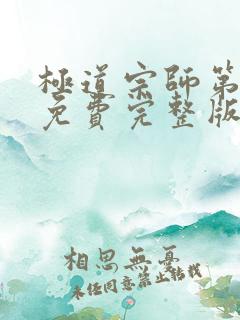 極道宗師第
免費完整版
相思無憂
未经同意禁止转载